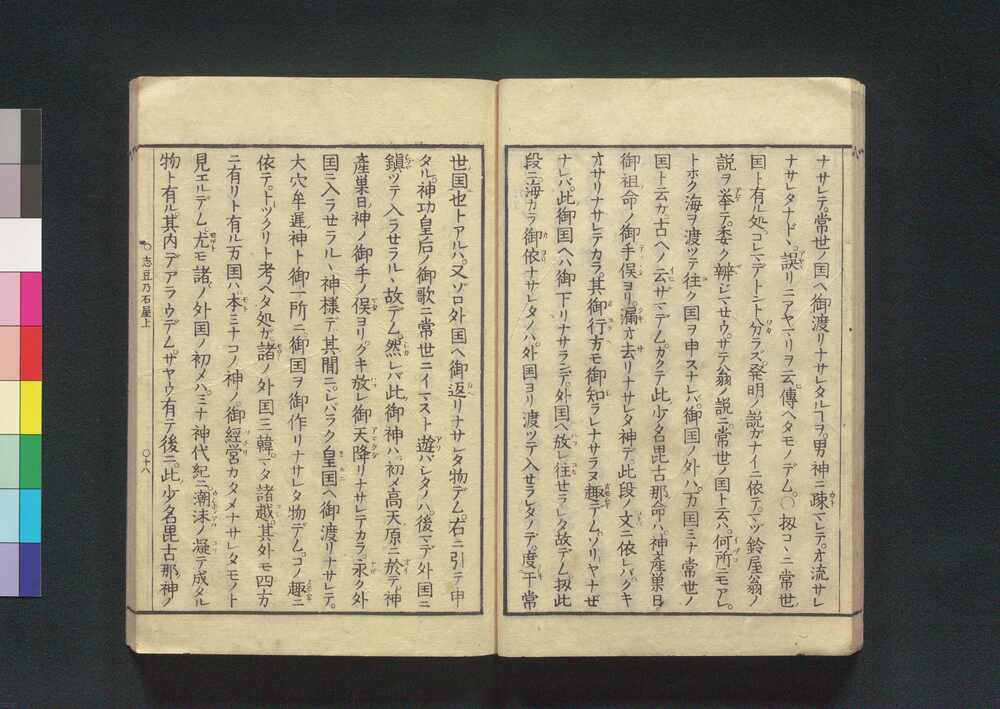 ナサレテ。常世ノ国ヘ御渡リナサレタルヿヲ。男神ニ疎マレテ。オ流サレ
ナサレタナド、。誤リニアヤマリヲ云傳ヘタモノデム。〇扨コヽニ常世ノ
国ト有ル処。コレマデトント分ラズ。発明ノ説ガナイニ依テ。マヅ鈴屋翁ノ
説ヲ挙テ。委ク辨ジマセウ。サテ翁ノ説ニ。常世ノ国ト云ハ。何所ニモアレ。
トホク海ヲ渡ツテ往ク国ヲ申スナレバ。御国ノ外ハ。万国ミナ常世ノ
国ト云カ。古ヘノ云ザマデム。カクテ此少名毘古那命ハ。神産巣日
御祖命ノ御手俣ヨリ。漏オ去リナサレタ神デ。此段ノ文ニ依レバ。クキ
オサリナサレテカラ。其御行方モ御知ラレナサラヌ趣デム。ソリヤナゼ
ナレバ。此御国ヘハ御下リナサランデ。外国ヘ放レ往セラレタ故デム。扨此
段ニ海カラ御依ナサレタノハ。外国ヨリ渡ツテ入セラレタノデ。度干常
世国也トアルハ。又ゾロ外国ヘ御返リナサレタ物デム。右ニ引テ申
タル。神功皇后ノ御歌ニ常世ニイマスト遊バレタノハ。後マデ外国ニ
鎮ツテ入ラセラルヽ故デム。然レバ此御神ハ。初メ高天原ニ於テ。神
産巣日神ノ御手ノ俣ヨリ。クキ放レ御天降リナサレテカラ。永ク外
国ニ入ラセラルヽ神様デ。其間ニ。シバラク皇国ヘ御渡リナサレテ。
大穴牟遅神ト御一所ニ御国ヲ御作リナサレタ物デム。コノ趣ニ
依テ。トツクリト考ヘタ処ガ。諸ノ外国三韓。マタ諸越。其外モ四方
ニ有リト有ル万国ハ。本ミナコノ神ノ。御經営カタメナサレタモノト
見エルデム。尤モ諸ノ外国ノ初メハ。ミナ神代紀ニ。潮沫ノ凝テ成タル
物ト有ル。其内デアラウデム。ザヤウ有テ後ニ。此少名毘古那神ノ
〇志豆乃石屋上
〇十八